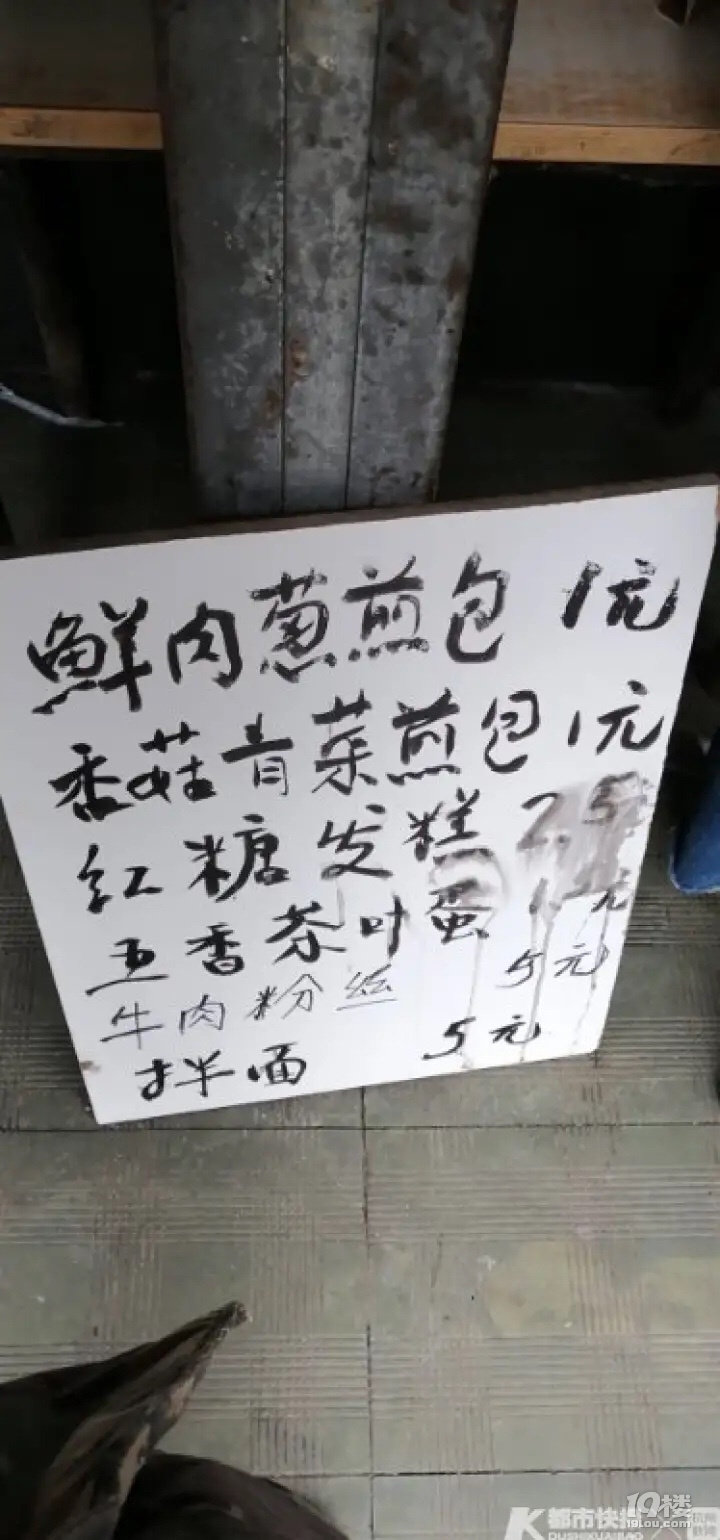 鮮肉葱煎包 1元
香菇青菜煎包 1元
红糖发糕 2.5
五香茶叶蛋 1.元
牛肉粉丝 5元
拌面 5元
都市快报
DUSHIKUAIBAO
19楼
19lou.com